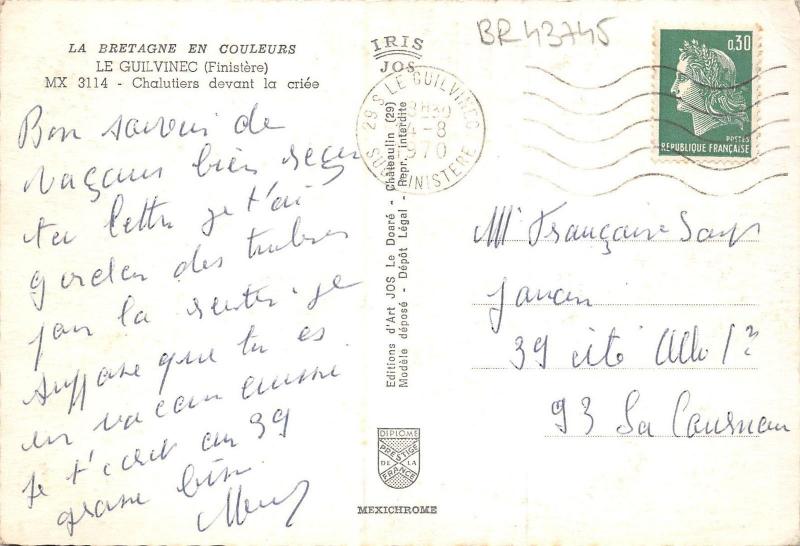 BR43745
LA BRETAGNE EN COULEURS
LE GUILVINEC (Finistère)
MX 3114 - Chalutiers devant la criée
IRIS
JOS
29 S LE GUILVINEC
4-8
1970
SUD FINISTÈRE
0,30
POSTES
REPUBLIQUE FRANÇAISE
Bon souvenir de
vaçans bien reçu
ta lettre je t'ai
garder des timbres
pour la rentrer je
suppose que tu es
en vacan aussi
Je t'ecrit au 39
grosse bise
Editions d'Art JOS Le Doaré - Châteaulin (29)
Modèle déposé - Dépôt Légal - Repr. interdite
Françoise
39 cité
93 La Courneu
DIPLOME
PRESTIGE
DE LA
FRANCE
MEXICHROME